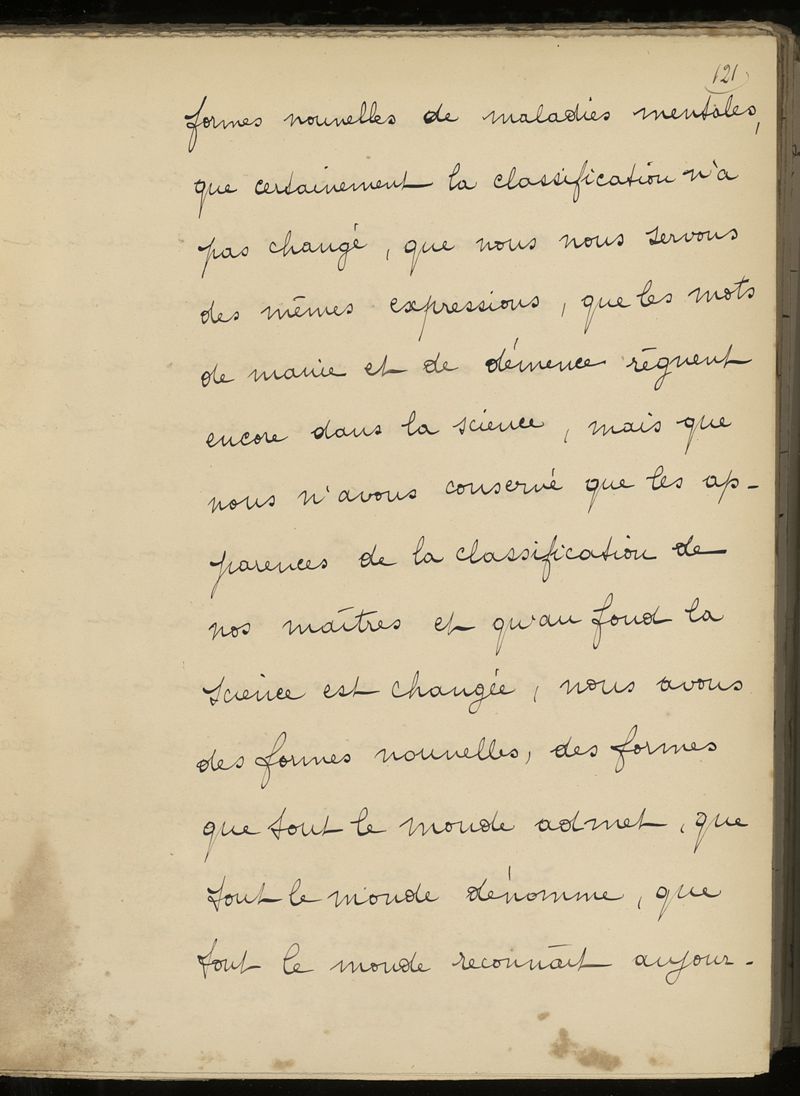 121
formes nouvelles de maladies mentales,
que certainement la classification n'a
pas changé, que nous nous servons
des mêmes expressions, que les mots
de manie et de démence règnent
encore dans la science, mais que
nous n'avons conservé que les ap-
parences de la classification de
nos maîtres et qu'au fond la
science est changée, nous avons
des formes nouvelles, des formes
que tout le monde admet, que
tout le monde dénomme, que
tout le monde reconnaît aujour-